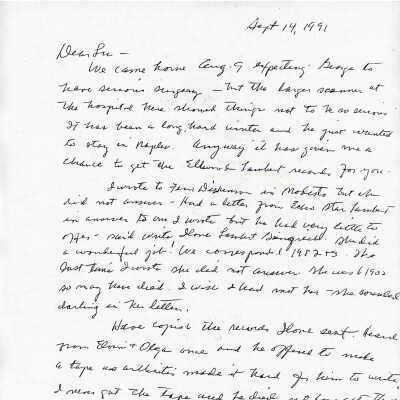 Sept 14, 1991
Dear Lu —
We came home Aug. 9 expecting George to
have serious surgery — but the larger scanner at
the hospital here showed things not to be so serious.
It has been a long, hard winter and he just wanted
to stay in Naples. Anyway it has given me a
chance to get the Ellwood Lambert records for you.
I wrote to Fern Dickinson in Modesto but she
did not answer — Had a letter from Star Lambert
in answer to one I wrote but he had very little to
offer — said write Ilone Lambert. She did
a wonderful job! We correspond 1982 + 3. The
last time I wrote she did not answer. She was b 1900
so may have died. I wish I had met her — she sounded
darling in her letters.
Have copied the records Ilone sent. Heard
from Elvin & Olga once and he offered to make
a tape as arthritis made it hard for him to write
I never got the tape and he died